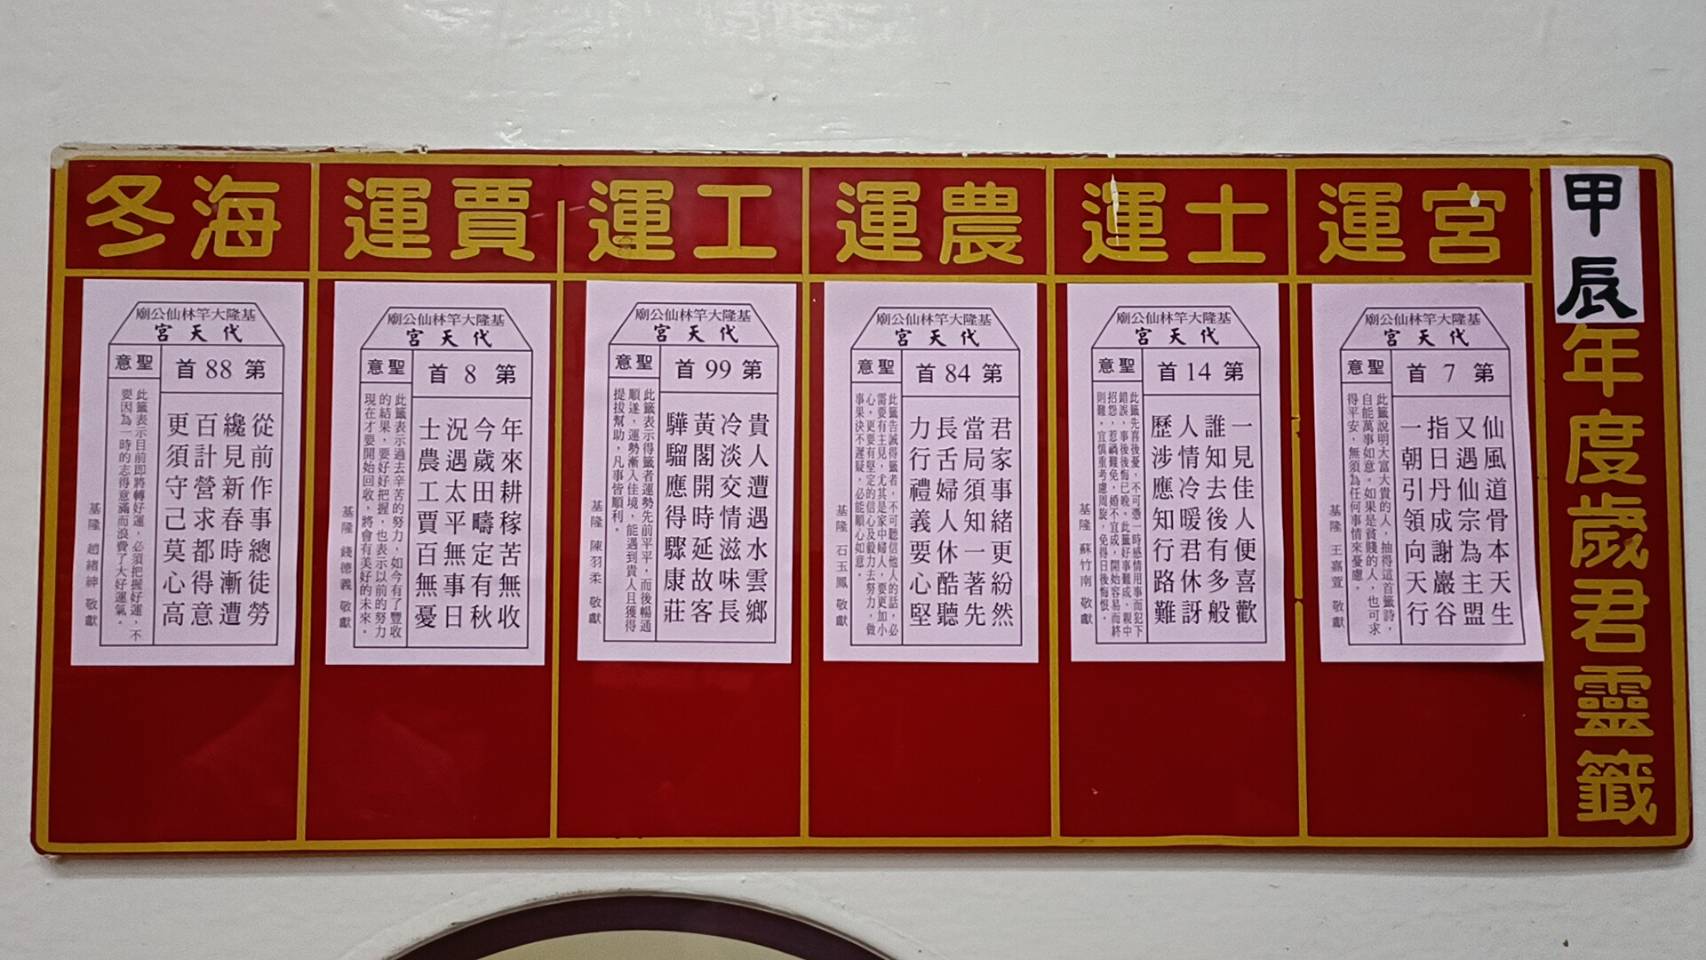 甲辰年度歲君靈籤
宮運
基隆大竿林仙公廟
代天宮
第7首
仙風道骨本天生
又遇仙宗為主盟
指日丹成謝巖谷
一朝引領向天行
聖意
此籤說明大富大貴的人，抽得這首籤詩，
自能萬事如意。如果是貧賤的人，也可求
得平安，無須為任何事情來憂慮。
基隆 王嘉萱 敬獻
士運
基隆大竿林仙公廟
代天宮
第14首
一見佳人便喜歡
誰知去後有多般
人情冷暖君休訝
歷涉應知行路難
聖意
此籤先喜後憂，不可憑一時感情用事而犯下
錯誤，事後後悔已晚。此籤好事難成，親中
招怨，惹禍難免，婚不宜成，開始容易而終
則難，宜慎重考慮周旋，免得日後悔恨。
基隆 蘇竹南 敬獻
農運
基隆大竿林仙公廟
代天宮
第84首
君家事緒更紛然
當局須知一著先
長舌婦人休酷聽
力行禮義要心堅
聖意
此籤告誡得籤者，不可聽信他人的話，必
需要有主見，尤其是家中婦人，要更加小
心，更要有堅定的信心及毅力去努力，做
事果決不遲疑，必能順心如意。
基隆 石玉鳳 敬獻
工運
基隆大竿林仙公廟
代天宮
第99首
貴人遭遇水雲鄉
冷淡交情滋味長
黃閣開時延故客
驊騮應得驟康莊
聖意
此籤表示得籤者運勢先前平平，而後暢通
順遂，運勢漸入佳境，能遇到貴人且獲得
提拔幫助，凡事皆順利。
基隆 陳羽柔 敬獻
賈運
基隆大竿林仙公廟
代天宮
第8首
年來耕稼苦無收
今歲田疇定有秋
況遇太平無事日
士農工賈百無憂
聖意
此籤表示過去辛苦的努力，如今有了豐收
的結果，要好好把握，也表示以前的努力
現在才要開始回收，將會有美好的未來。
基隆 錢德義 敬獻
海冬
基隆大竿林仙公廟
代天宮
第88首
從前作事總徒勞
纔見新春時漸遭
百計營求都得意
更須守己莫心高
聖意
此籤表示目前即將轉好運，必須把握好運，不
要因為一時的志得意滿而浪費了大好運氣。
基隆 趙緒紳 敬獻